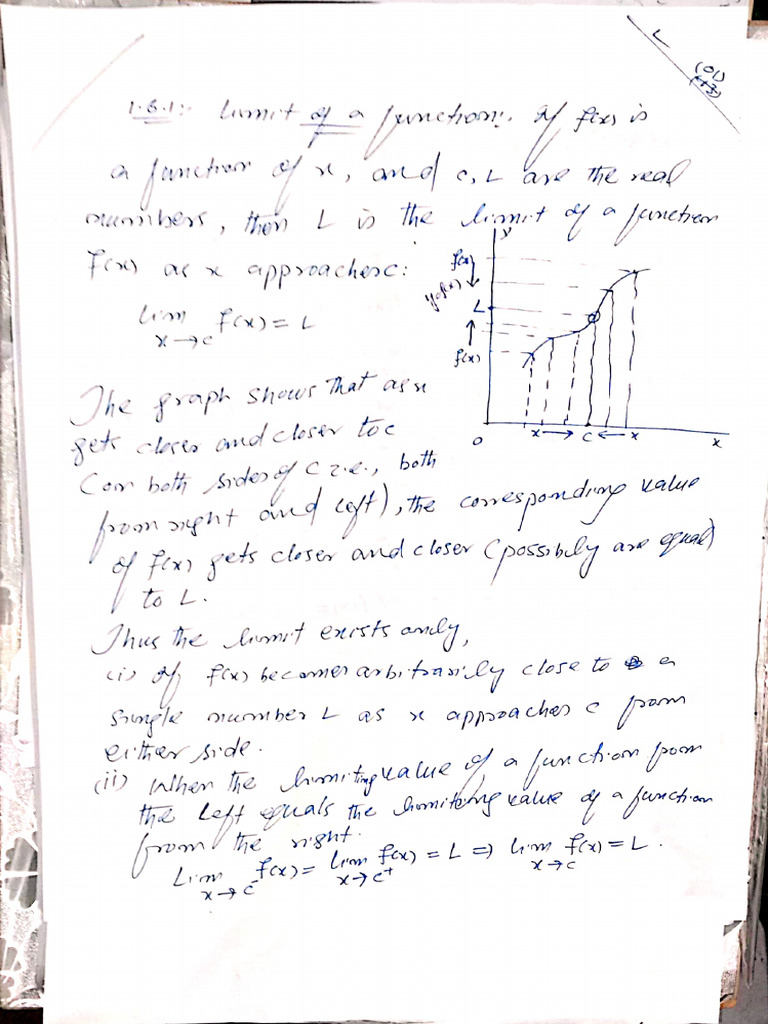 L
(01)
1.6.1:- Limit of a function:. If f(x) is
a function of x, and c, L are the real
numbers, then L is the limit of a function
f(x) as x approaches c:
lim f(x) = L
x→c
y
f(x)
y=f(x)
L
f(x)
o x → c ← x x
The graph shows that as x
gets closer and closer to c
(on both sides of c i.e., both
from right and left), the corresponding value
of f(x) gets closer and closer (possibly are equal)
to L.
Thus the limit exists only,
(i) If f(x) becomes arbitrarily close to a
single number L as x approaches c from
either side.
(ii) When the limiting value of a function from
the left equals the limiting value of a function
from the right.
Lim f(x) = Lim f(x) = L ⇒ lim f(x) = L.
x→c⁻ x→c⁺ x→c